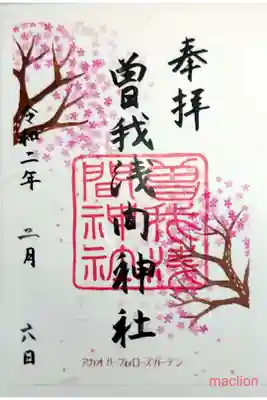 奉拝
曽我浅間神社
令和二年 二月 六日
曽我浅
間神社
アカオハーブ&ローズガーデン
maclion